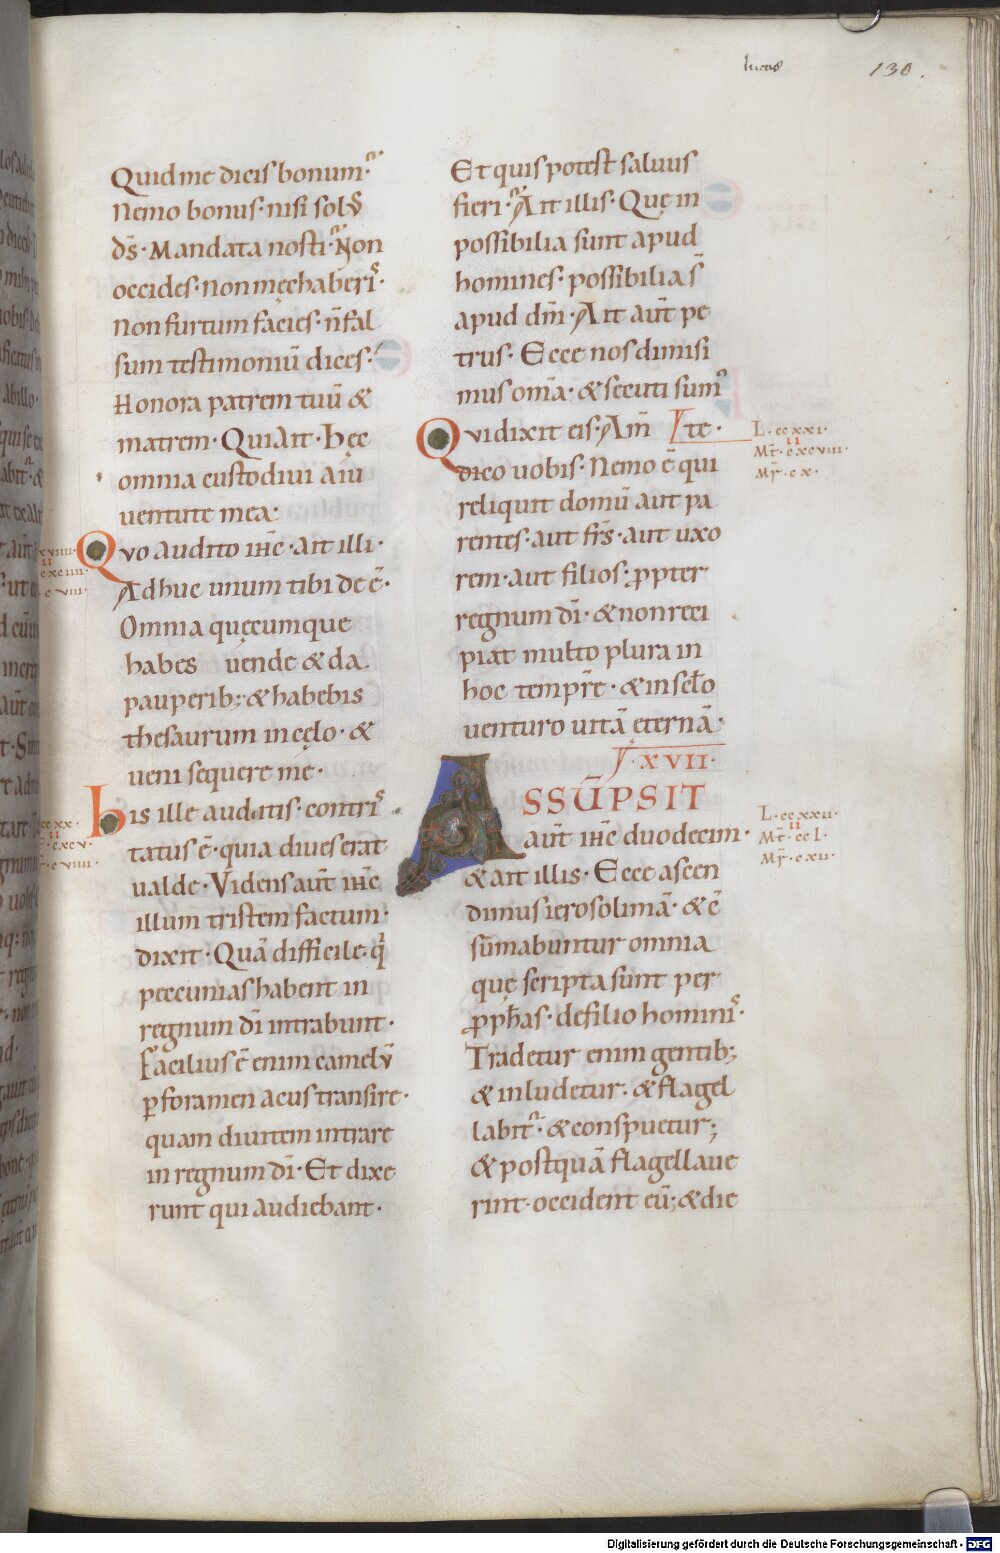 lucas
130.
Quid me dicis bonum·
Nemo bonus· nisi solꝰ
ds̄· Mandata nosti· Non
occides· non męchaberis·
Non furtum facies· n̄ fal
sum testimoniū dices·
Honora patrem tuū &
matrem· Qui ait· Hęc
omnia custodivi a iu
ventute mea·
Quo audito ihc̄· ait illi·
Adhuc unum tibi de ē·
Omnia quęcumque
habes uende & da
pauperib;· & habebis
thesaurum in cęlo· &
veni sequere me·
his ille auditis· contris
tatus ē· quia dives erat
ualde· Videns aut̄ ihc̄
illum tristem factum·
dixit· Quā difficile· qi
peccunias habent in
regnum dī intrabunt·
Facilius ē enim camelū
ꝑ foramen acus transire·
quam divitem intrare
in regnum dī· Et dixe
runt qui audiebant·
Et quis potest saluus
fieri· Ait illis· Quę in
possibilia sunt apud
homines· possibilia s̄
apud dm̄· Ait aut̄ pe
trus· Ecce nos dimisi
mus om̄a· & secuti sumꝰ
Qui dixit eis· Am̄ te·
dico vobis· Nemo ē qui
reliquit domū aut pa
rentes· aut fr̄s· aut uxo
rem· aut filios· ꝓpter
regnum dī· & non reci
piat multo plura in
hoc tempr̄e· & in scl̄o
venturo vitā ęternā·
XVII·
ASSŪPSIT
aut̄ ihc̄ duodecim·
& ait illis· Ecce ascen
dimus ierosolimā· & c̄
sūmabuntur omnia
quę scripta sunt per
ꝓph̄as· de filio hominis·
Tradetur enim gentib;
& inludetur· & flagel
labit᷑· & conspuetur;
& postquā flagellave
rint· occident eū; & die
L· ccxxi·
II
Mt̄· cxcviii·
Mr̄· cx·
L· ccxxii·
II
Mt̄· ccl·
Mr̄· cxii·
Digitalisierung gefördert durch die Deutsche Forschungsgemeinschaft - DFG